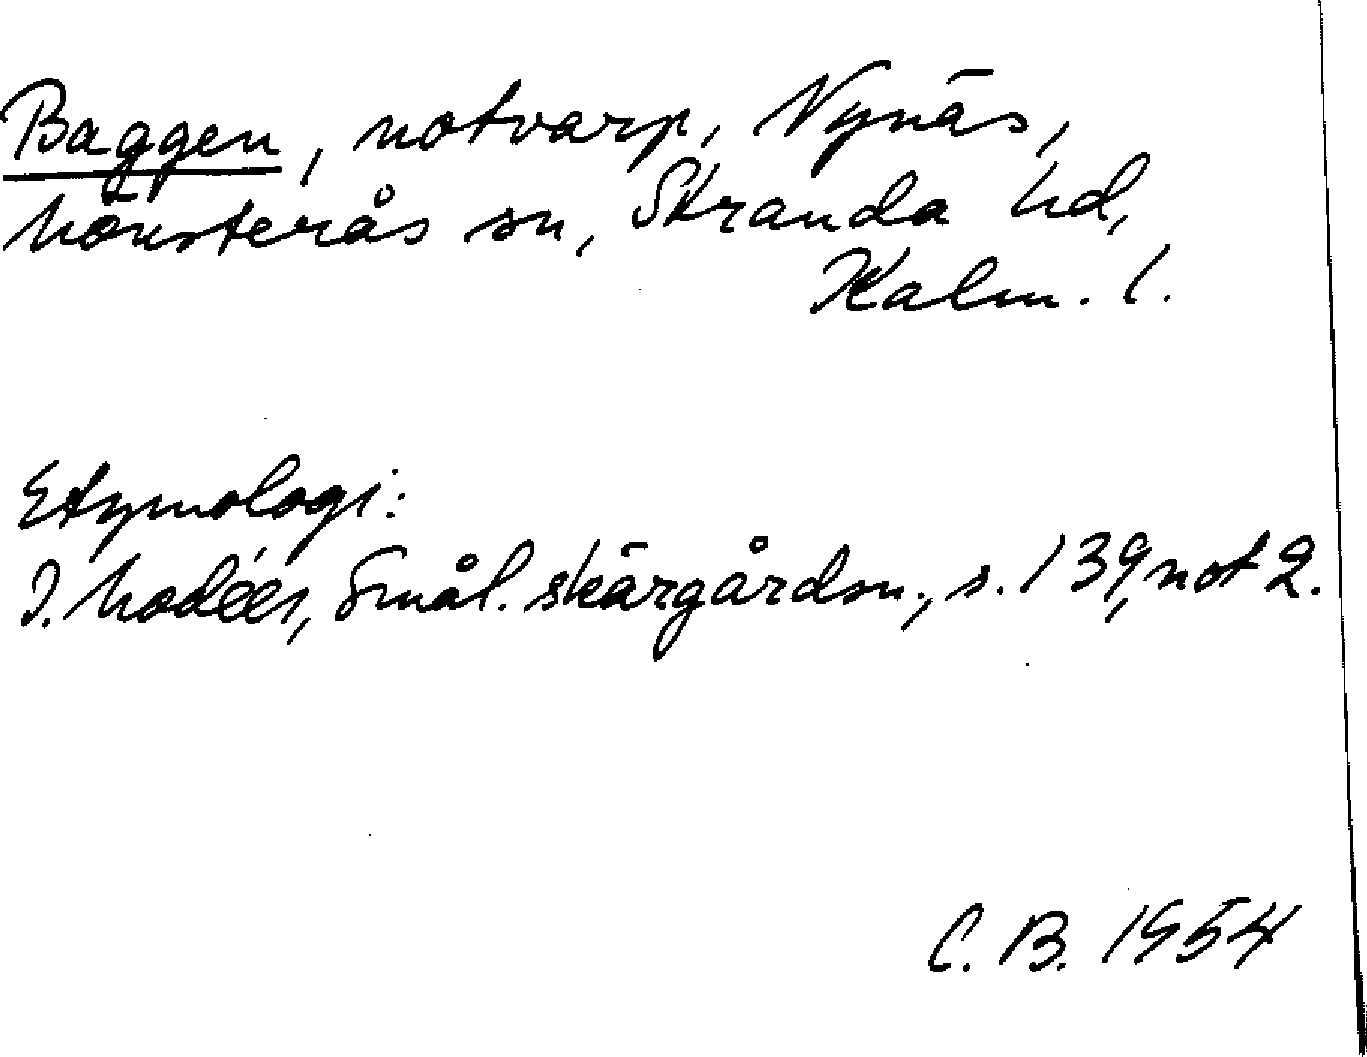 Baggen, notvarp, Nynäs,
Mönsterås sn, Stranda hd,
Kalm. l.
Etymologi:
I. Modéer, Smål. skärgårdsn., s. 139, not 2.
C. B. 1954